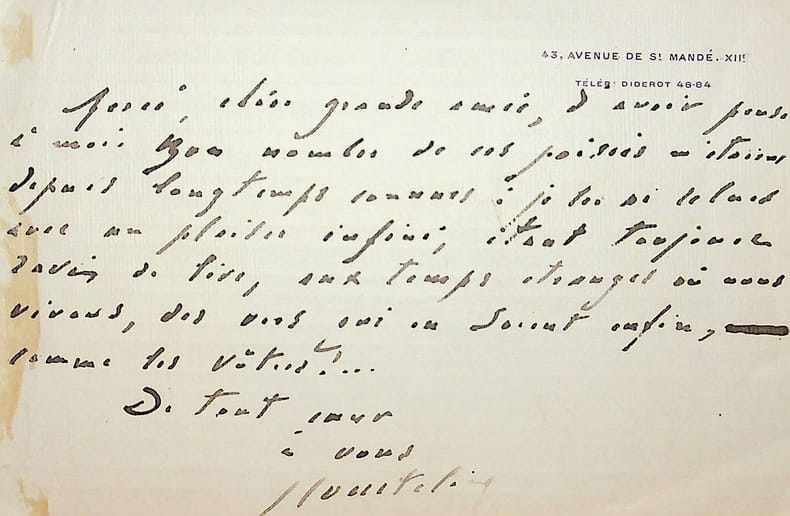 43, AVENUE DE St MANDÉ. XIIe
TÉLÉP: DIDEROT 48-84
Merci, chère grande amie, d'avoir pensé
à moi. Bon nombre de ces poésies m'étaient
depuis longtemps connues ; je les ai relues
avec un plaisir infini, étant toujours
ravi de lire, aux temps étranges où nous
vivons, des vers qui en soient enfin,
comme les vôtres!...
De tout cœur
à vous